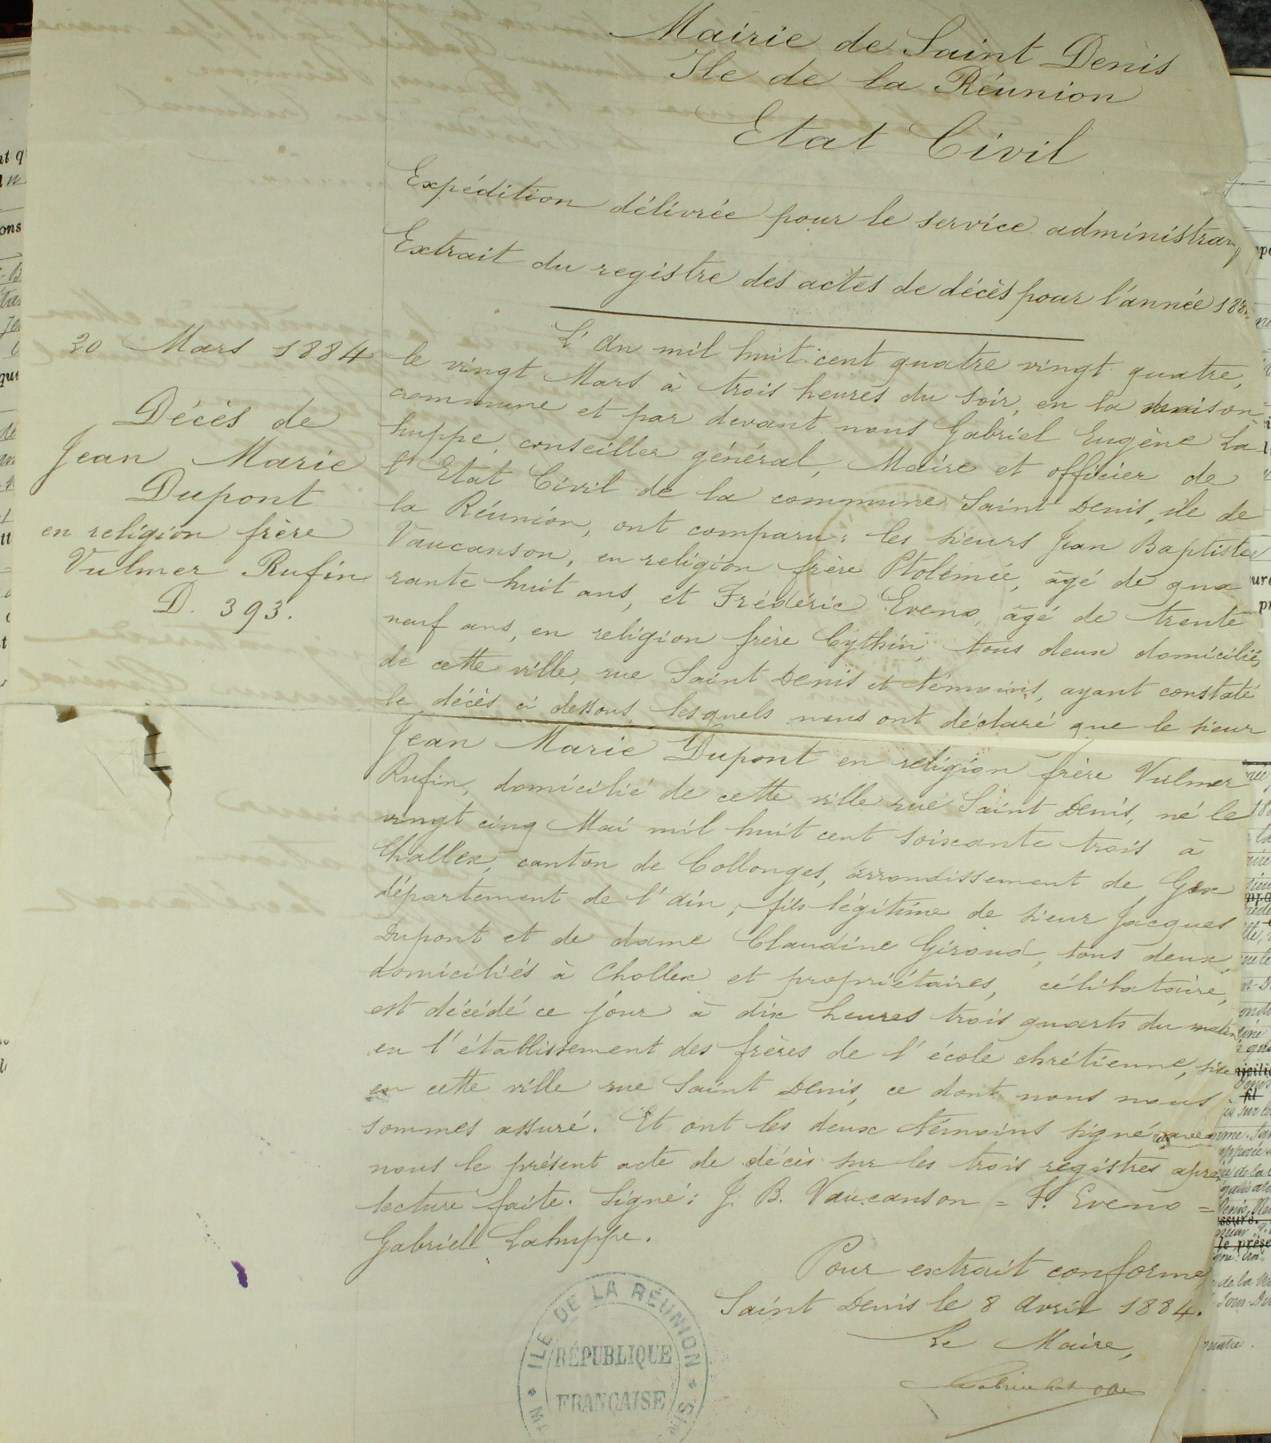 Mairie de Saint Denis
Ile de la Réunion
Etat Civil
Expédition délivrée pour le service administra
Extrait du registre des actes de décès pour l'année 188
20 Mars 1884
Décès de
Jean Marie
Dupont
en religion frère
Vulmer Rufin
D. 393.
L'An mil huit cent quatre vingt quatre,
le vingt Mars à trois heures du soir, en la maison
commune et par devant nous Gabriel Eugène La
huppe, conseiller général, Maire et officier de
l'Etat Civil de la commune Saint Denis, île de
la Réunion, ont comparu: les sieurs Jean Baptiste
Vaucanson, en religion frère Ptolémée, âgé de qua
rante huit ans, et Frédéric Eveno, âgé de trente
neuf ans, en religion frère Cythin, tous deux domiciliés
de cette ville, rue Saint Denis et témoins, ayant constaté
le décès ci dessous, lesquels nous ont déclaré que le sieur
Jean Marie Dupont en religion frère Vulmer
Rufin, domicilié de cette ville rue Saint Denis, né le
vingt cinq Mai mil huit cent soixante trois à
Challex, canton de Collonges, arrondissement de Gex
département de l'ain, fils légitime de sieur Jacques
Dupont et de dame Claudine Giroud, tous deux
domiciliés à Chollex et propriétaires, célibataire,
est décédé ce jour à dix heures trois quarts du matin
en l'établissement des frères de l'école chrétienne, sise
en cette ville rue Saint Denis, ce dont nous nous
sommes assuré. Et ont les deux témoins signé avec
nous le présent acte de décès sur les trois registres après
lecture faite. Signé: J. B. Vaucanson = F. Eveno =
Gabriel Lahuppe.
Pour extrait conforme
Saint Denis le 8 Avril 1884.
Le Maire,
ILE DE LA RÉUNION
RÉPUBLIQUE
FRANÇAISE